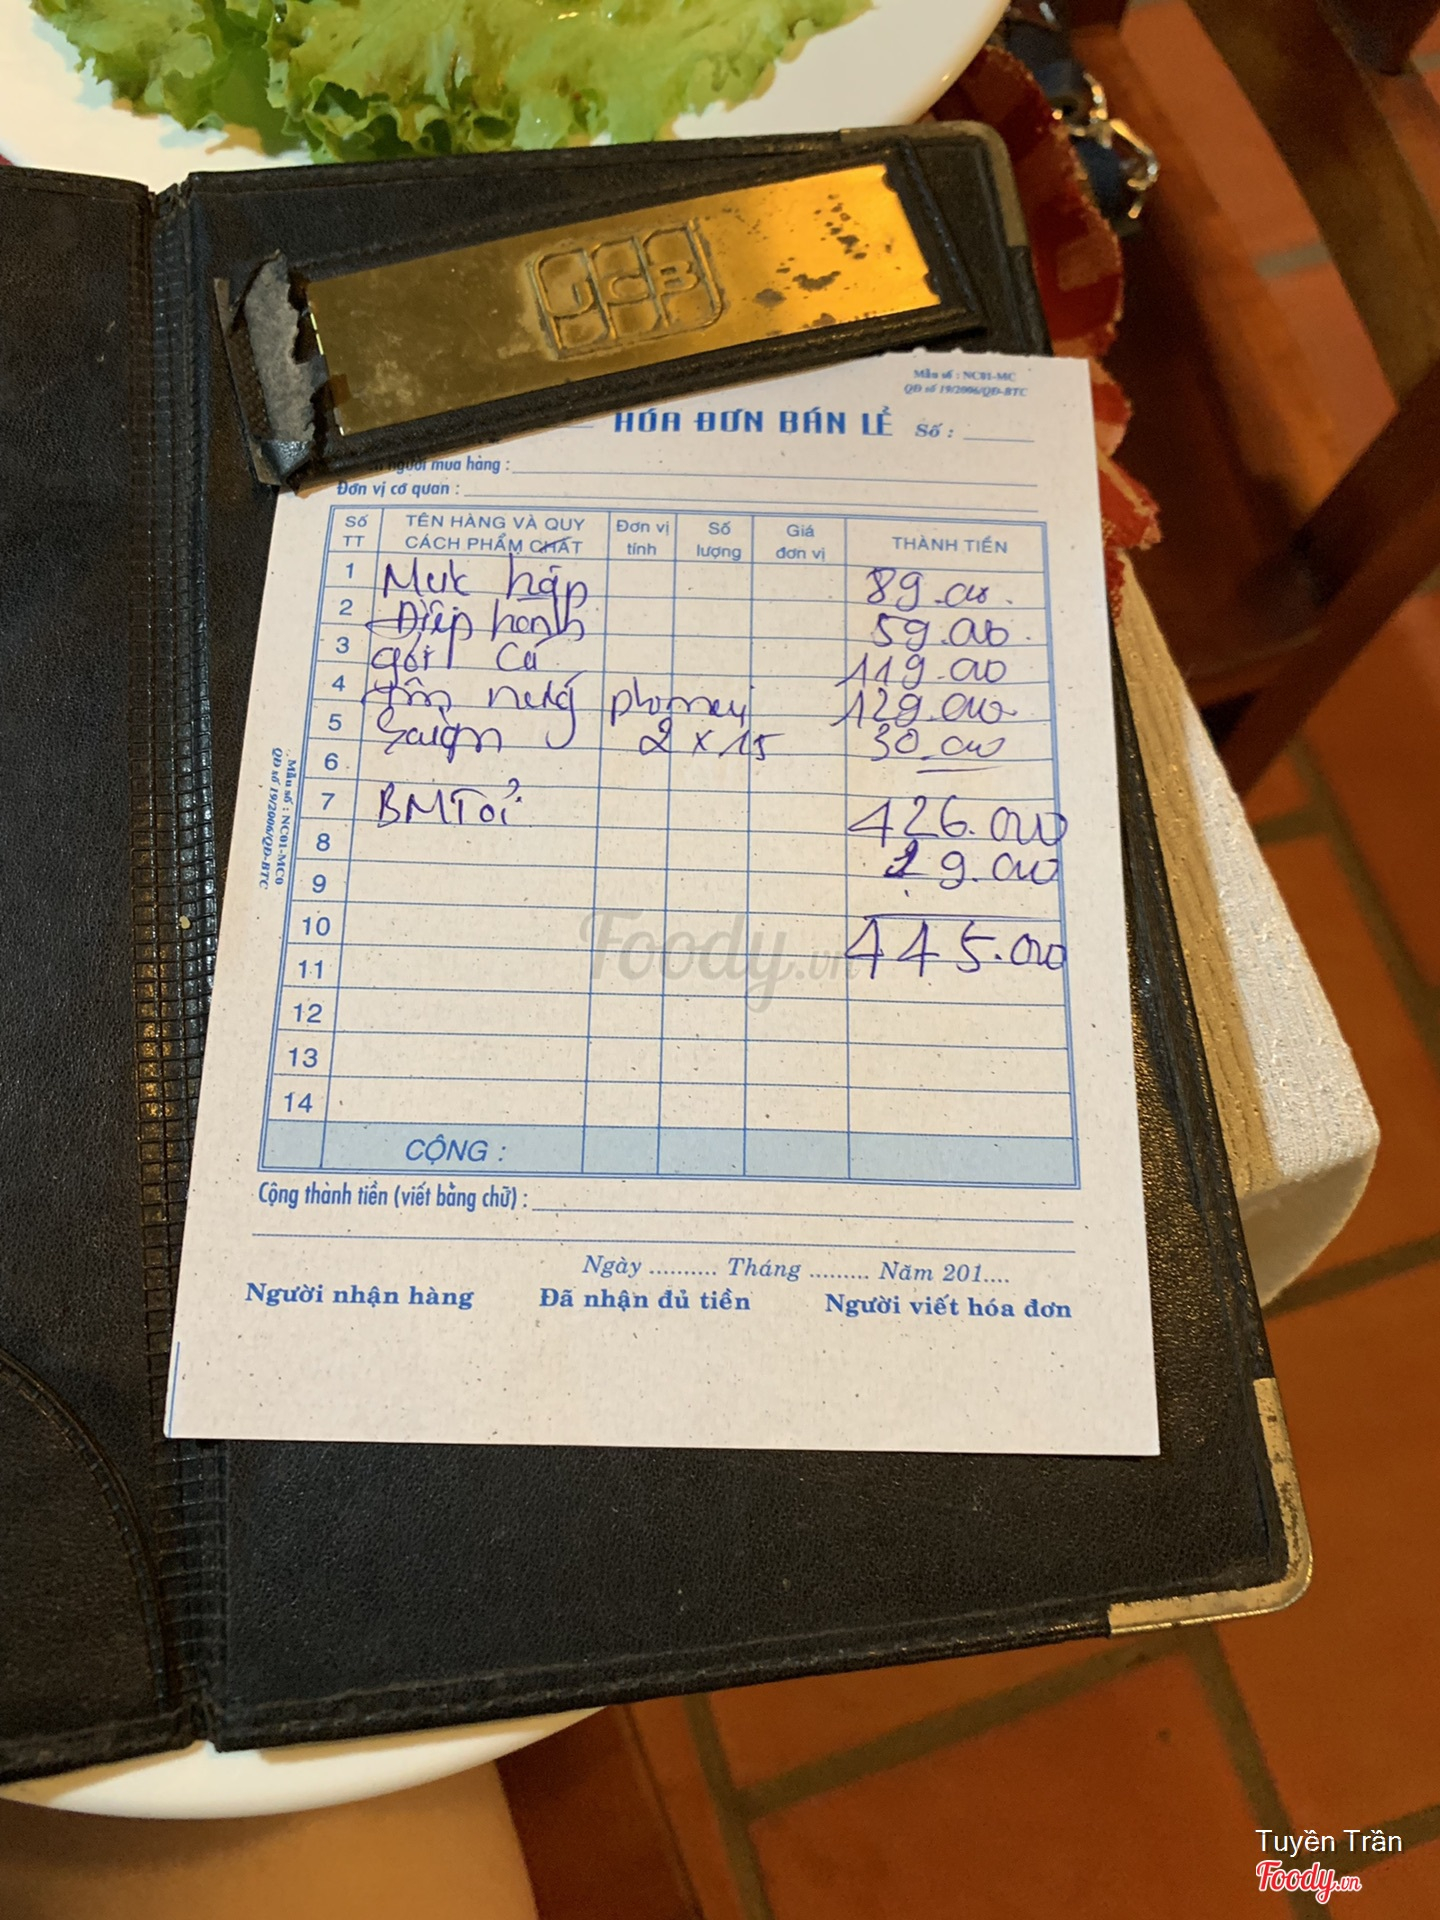 JCB
Mẫu số : NC01-MC
QĐ số 19/2006/QĐ-BTC
HÓA ĐƠN BÁN LẺ Số :
người mua hàng :
Đơn vị cơ quan :
Số TT TÊN HÀNG VÀ QUY CÁCH PHẨM CHẤT Đơn vị tính Số lượng Giá đơn vị THÀNH TIỀN
1 Mực hấp 89.000
2 Điệp hành 59.000
3 gỏi cá 119.000
4 nướng phomai 129.000
5 Saigon 2 x 15 30.000
6
7 BMTỏi 426.000
8 19.000
9
10 445.000
11
12
13
14
CỘNG :
Cộng thành tiền (viết bằng chữ) :
Ngày .......... Tháng ......... Năm 201....
Người nhận hàng Đã nhận đủ tiền Người viết hóa đơn
Mẫu số : NC01-MC0
QĐ số 19/2006/QĐ-BTC
Foody.vn
Tuyền Trần
Foody.vn